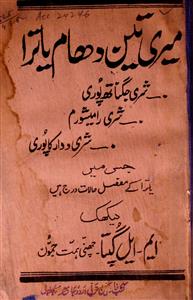 Acc 24246
میری تین دھام یاترا
شری جگناتھ پوری
شری رامیشورم
شری دوارکا پوری
جس میں
یاترا کے مفصل حالات درج ہیں
لیکھک
ایم۔ ایل گپتا۔ چھنی ہمت جموں